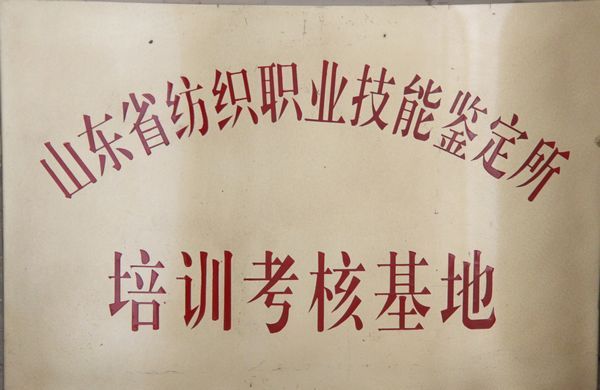 山东省纺织职业技能鉴定所
培训考核基地